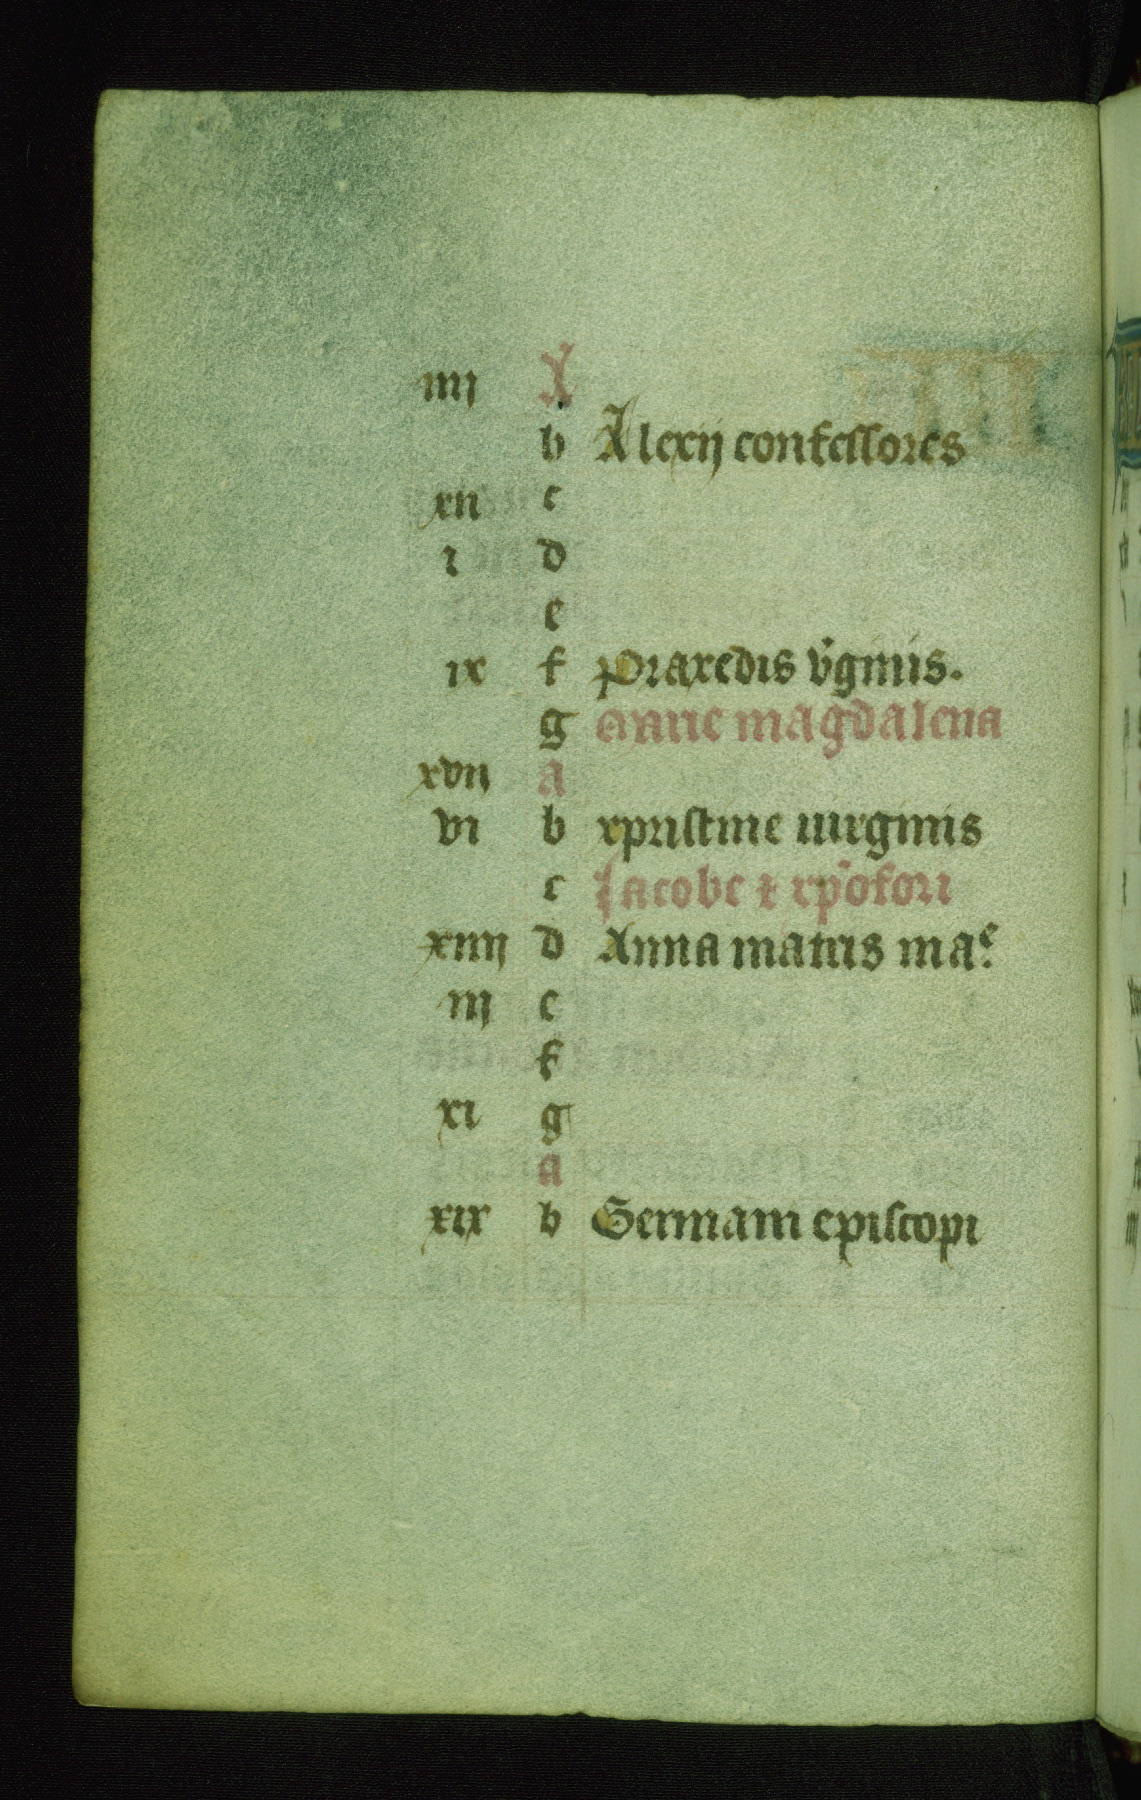 iiij A
b Alexij confessores
xii c
i d
e
ix f Praxedis v̾ginis.
g marie magdalena
xvij a
vi b xpristine uirginis
c Jacobe ⁊ xp̄ofori
xiiij d Anna matris maᵉ.
iij e
f
xi g
a
xix b Germani episcopi